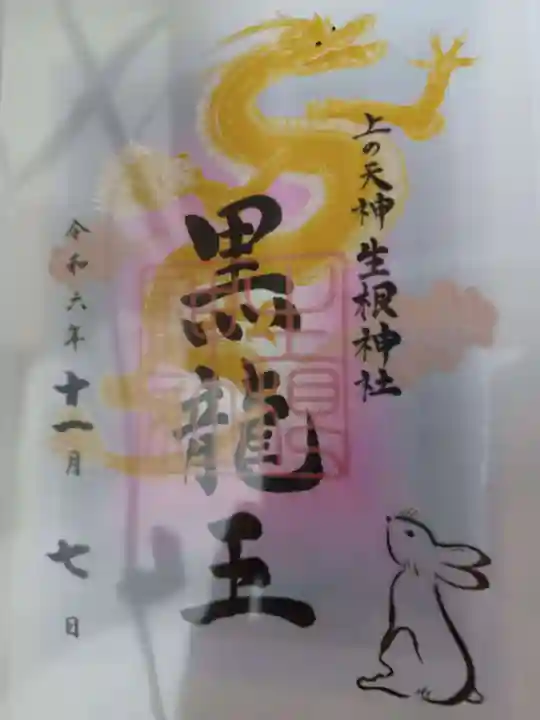 上の天神 生根神社
黒龍王
令和六年十一月七日